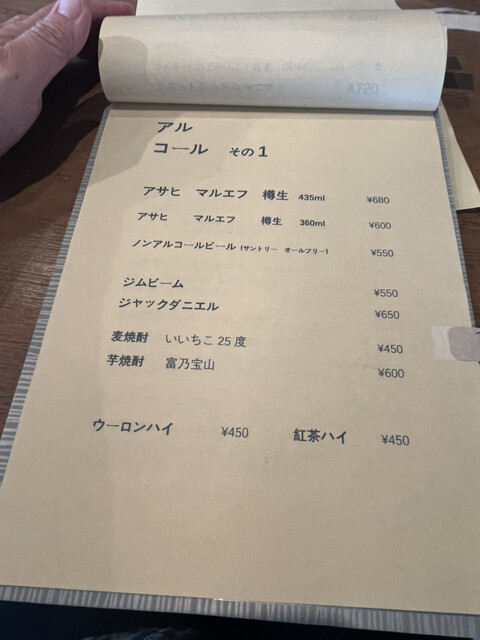 アル
コール その1
アサヒ マルエフ 樽生 435ml ¥680
アサヒ マルエフ 樽生 360ml ¥600
ノンアルコールビール (サントリー オールフリー) ¥550
ジムビーム ¥550
ジャックダニエル ¥650
麦焼酎 いいちこ25度 ¥450
芋焼酎 富乃宝山 ¥600
ウーロンハイ ¥450 紅茶ハイ ¥450